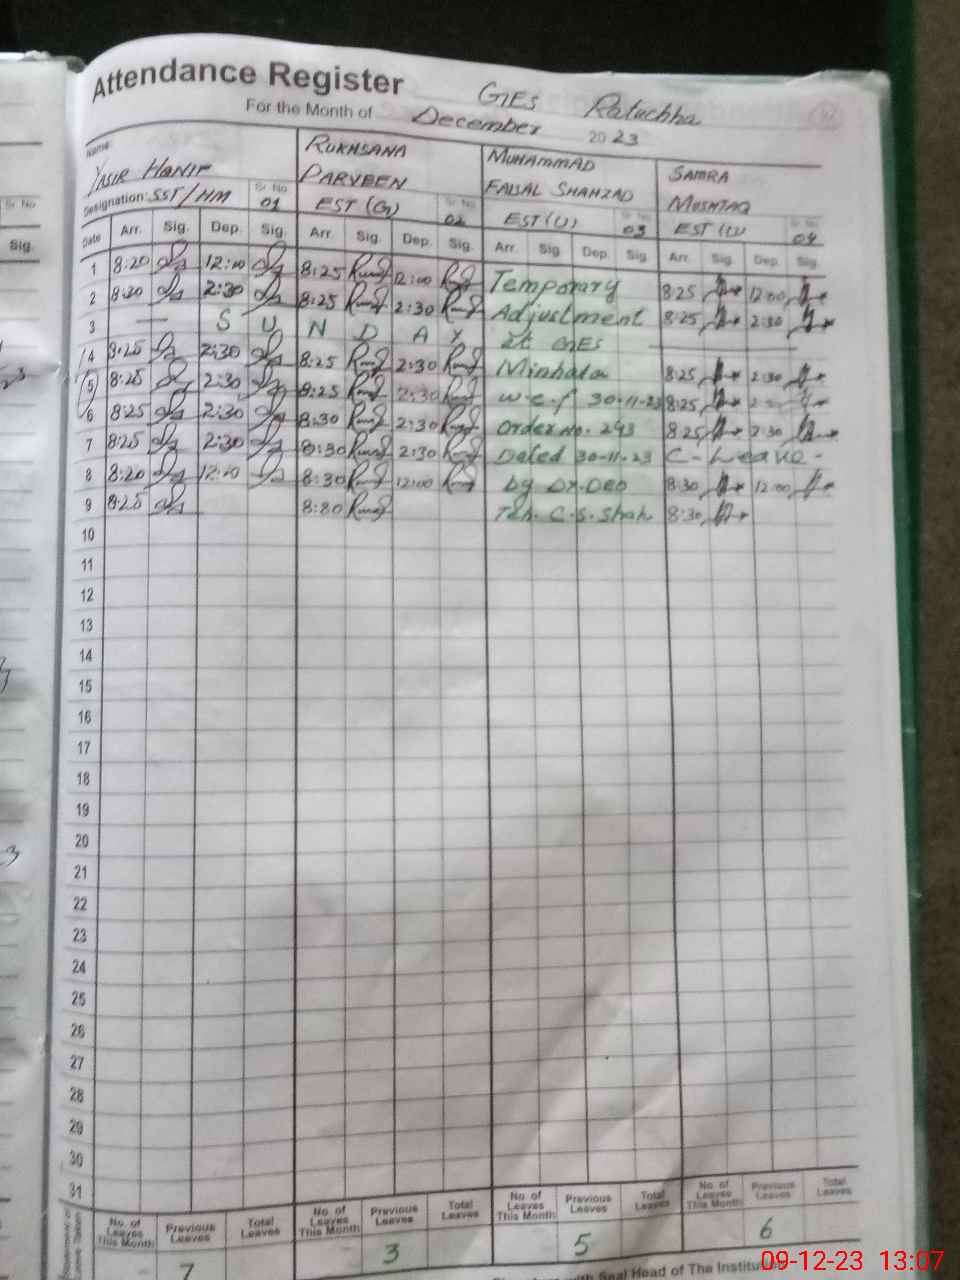 Attendance Register
GES Ratuchha
For the Month of December 2023
Name
YASIR HANIF
RUKHSANA
PARVEEN
MUHAMMAD
FAISAL SHAHZAD
SAMRA
MUSHTAQ
Designation: SST/HM Sr No 01 EST (G) Sr No 02 EST (U) Sr No 03 EST (U) Sr No 04
Date Arr. Sig. Dep. Sig. Arr. Sig. Dep. Sig. Arr. Sig. Dep. Sig. Arr. Sig. Dep. Sig.
1 8:20 12:00 8:25 12:00 Temporary 8:25 12:00
2 8:30 2:30 8:25 2:30 Adjustment 8:25 2:30
3 S U N D A Y at GES
4 8:25 2:30 8:25 2:30 Minhala 8:25 2:30
5 8:25 2:30 8:25 2:30 w.e.f 30-11-23 8:25
6 8:25 2:30 8:30 2:30 Order No. 293 8:25 2:30
7 8:25 2:30 8:30 2:30 Dated 30-11-23 C-Leave-
8 8:20 12:00 8:30 12:00 by Dy.DEO 8:30 12:00
9 8:25 8:30 Teh. C.S. Shah 8:30
10
11
12
13
14
15
16
17
18
19
20
21
22
23
24
25
26
27
28
29
30
31
No. of Leaves This Month Previous Leaves Total Leaves No. of Leaves This Month Previous Leaves Total Leaves No. of Leaves This Month Previous Leaves Total Leaves No. of Leaves This Month Previous Leaves Total Leaves
7 3 5 6
with Seal Head of The Institution
09-12-23 13:07